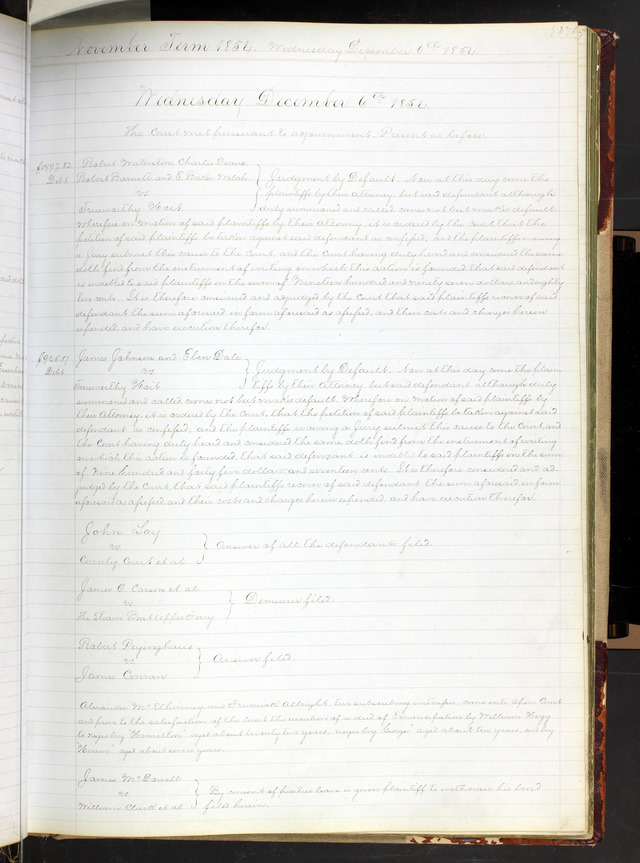 November Term 1854. Wednesday December 6th 1854.
Wednesday December 6th 1854.
The Court met pursuant to adjournment, Present as before.
Robert Charles
Debt Robert Barnett and E. Welsh } Judgment by Default. Now at this day come the
vs plaintiffs by their Attorney, but said defendant although
Trueworthy Hoit duly summoned and called comes not but makes default.
Wherefore on motion of said plaintiffs by their Attorney, it is ordered by the Court that the
petition of said plaintiffs be taken against said defendant as confessed, and the plaintiffs waiving
a Jury submit this cause to the Court, and the Court having duly heard and considered the same
doth find from the instrument of writing on which this action is founded that said defendant
is indebted to said plaintiffs in the sum of Nineteen hundred and ninety seven dollars and eighty
two cents. It is therefore considered and adjudged by the Court that said plaintiffs recover of said
defendant the sum aforesaid in form aforesaid as assessed, and their costs and charges herein
expended, and have execution therefor.
$945.17 James Johnson and Eben Dale
Debt vs } Judgment by Default. Now at this day come the plain
Trueworthy Hoit tiffs by their Attorney, but said defendant although duly
summoned and called comes not but makes default. Wherefore on motion of said plaintiffs by
their Attorney, it is ordered by the Court, that the petition of said plaintiffs be taken against said
defendant as confessed, and the plaintiffs waiving a Jury submit this cause to the Court and
the Court having duly heard and considered the same, doth find from the instrument of writing
on which this action is founded, that said defendant is indebted to said plaintiffs in the sum
of Nine hundred and forty five dollars and seventeen cents. It is therefore considered and ad-
judged by the Court that said plaintiffs recover of said defendant the sum aforesaid in form
aforesaid as assessed and their costs and charges herein expended, and have execution therefor.
John Lay
vs } Answer of all the defendants filed.
County Court et al
James C. Carson et al
vs } Demurrer filed.
The Steam Boat Upper Ferry
Robert
vs } Answer filed.
James Conran
Alexander McElhinney and Frederick Albright, two subscribing witnesses, come into open Court
and prove to the satisfaction of the Court the execution of a deed of Emancipation by William Hogg
to negro boy "Hamilton" aged about twenty two years, negro boy "George" aged about ten years, and boy
aged about seven years.
James
vs } By consent of parties leave is given plaintiff to withdraw his bond
William Clark et al filed herein.